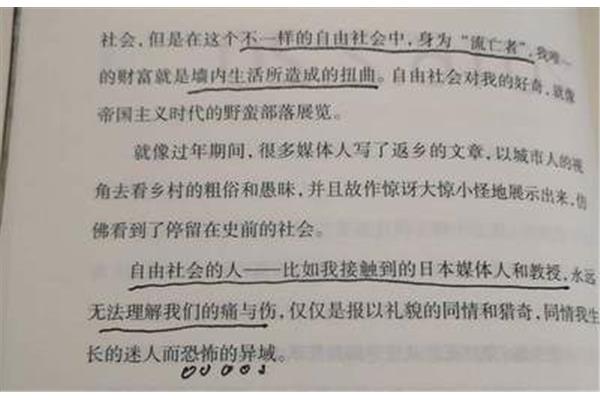 社会，但是在这个不一样的自由社会中，身为“流亡者”，我唯一
的财富就是墙内生活所造成的扭曲。自由社会对我的好奇，就像
帝国主义时代的野蛮部落展览。
就像过年期间，很多媒体人写了返乡的文章，以城市人的视
角去看乡村的粗俗和愚昧，并且故作惊讶大惊小怪地展示出来，仿
佛看到了停留在史前的社会。
自由社会的人——比如我接触到的日本媒体人和教授，永远
无法理解我们的痛与伤，仅仅是报以礼貌的同情和猎奇，同情我生
长的迷人而恐怖的异域。